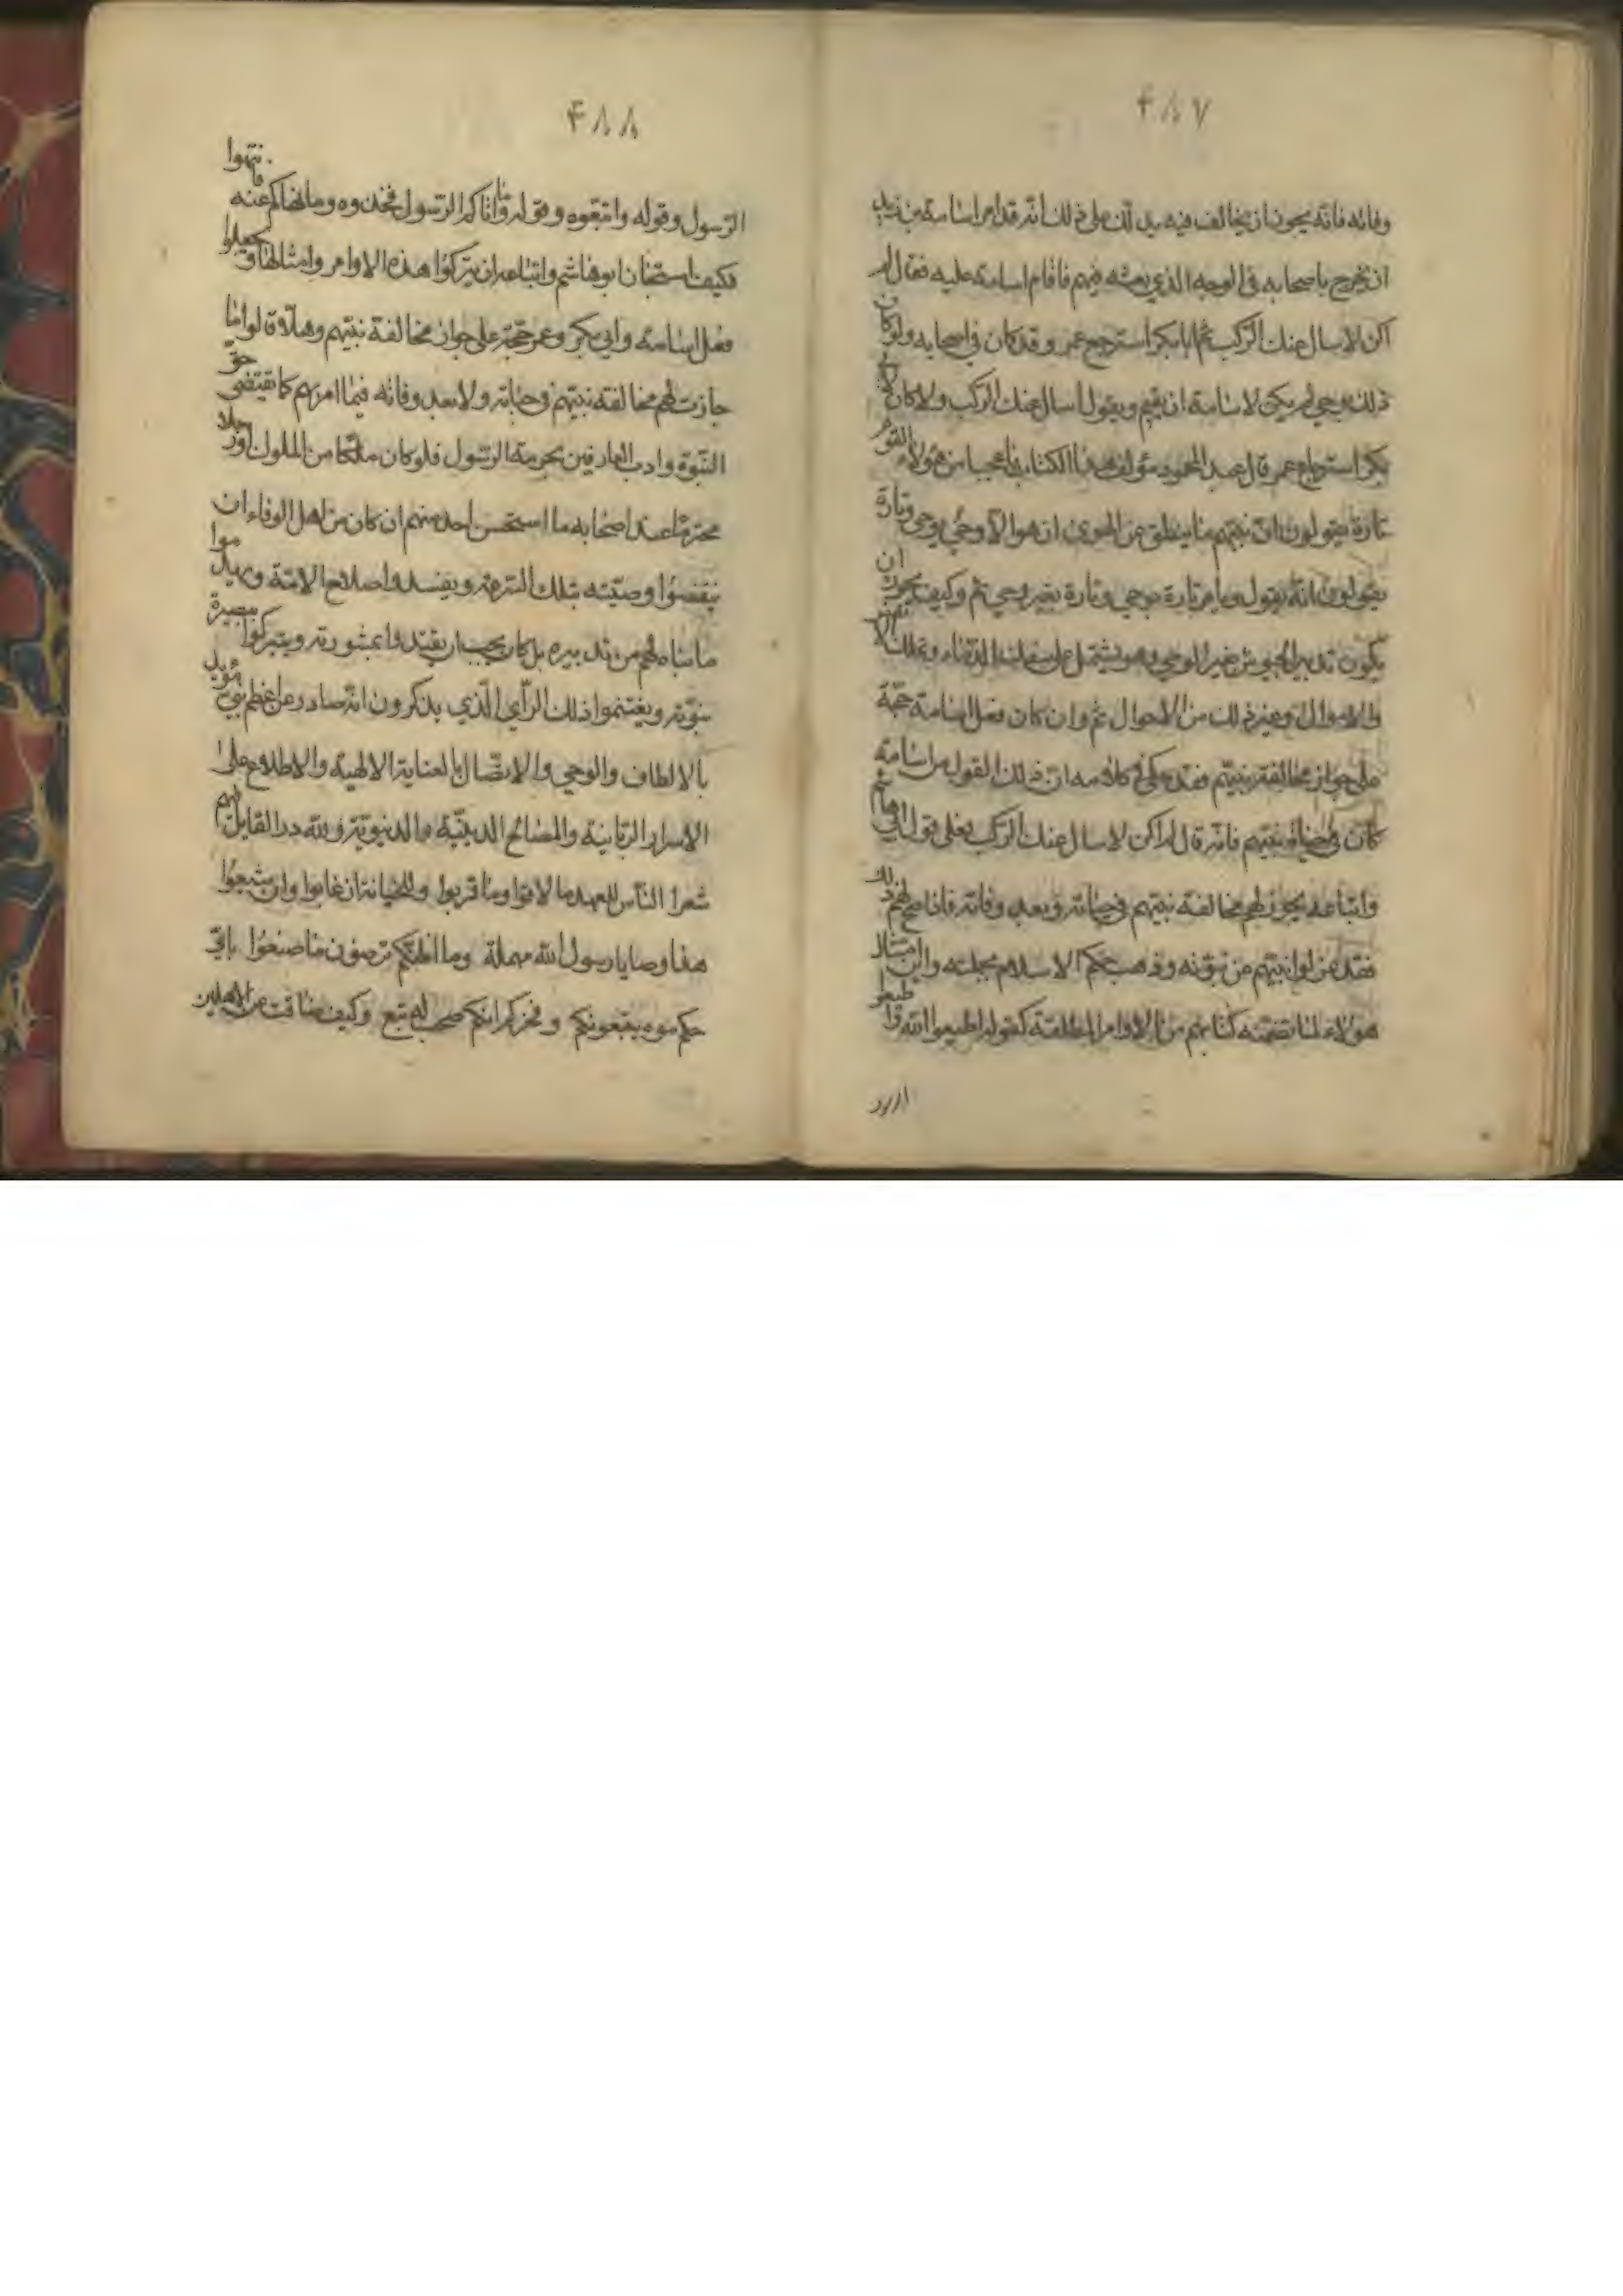 ۴۸۷
وفاته فانه يجوز ان يخالف فيه يدلك على ذلك انه قد امر اسامة بن زيد
ان يخرج باصحابه في الوجه الذي بعثه فيهم فاقام اسامة عليه فقال له
لم اكن لاسال عنك الركب ثم ابا بكر استرجع عمر وقد كان في اصحابه ولو كان
ذلك بوحي لم يكن لاسامة ان يقيم ويقول اسال عنك الركب ولا كان لابي
بكر استرجاع عمر قال عبد المحمود مؤلف هذا الكتاب فاعجبا من هؤلاء القوم
تارة يقولون ان نبيهم ما ينطق عن الهوى ان هو الا وحي يوحى وتارة
يقولون انه يقول ويامر تارة بوحي وتارة بغير وحي ثم وكيف يجوز ان
يكون تدبير الجيوش بغير الوحي وهو يشتمل على سفك الدماء وتملك
والاموال وغير ذلك من الاحوال ثم وان كان فعل اسامة حجة
على جواز مخالفة نبيهم فقد حكي في كلامه ان ذلك القول من اسامة
كان في حياة نبيهم فانه قال لم اكن لاسال عنك الركب فعلى قول ابي هاشم
واتباعه يجوز لهم مخالفة نبيهم في حياته وبعد وفاته فاذا صح لهم ذلك
فقد عزلوا نبيهم من نبوته وذهب حكم الاسلام بجملته واين امتثال
هؤلاء لما تضمنه كتابهم من الاوامر المطلقة كقوله اطيعوا الله واطيعوا
الرسول
۴۸۸
الرسول وقوله واتبعوه وقوله وما اتاكم الرسول فخذوه وما نهاكم عنه فانتهوا
فكيف استجاز ابو هاشم واتباعه ان يتركوا هذه الاوامر وامثالها وجعلوا
فعل اسامة وابي بكر وعمر حجة على جواز مخالفة نبيهم وهلا قالوا ما
جازت لهم مخالفة نبيهم في حياته ولا بعد وفاته فيما امرهم كما يقتضي حق
النبوة وادب العارفين بحرمة الرسول فلو كان ملكا من الملوك او رجلا
محترما عند اصحابه ما استحسن احد منهم ان كان من اهل الوفاء ان
ينقضوا وصيته بتلك السرعة ويفسدوا صلاح الامة ويهدموا
ما بناه لهم من تدبيره بل كان يجب ان يقتدوا بمشورته ويتبركوا ببصيرة
نبوته ويغتنموا ذلك الراي الذي يذكرون انه صادر عن اعظم نبي مؤيد
بالالطاف والوحي والاتصال بالعناية الالهية والاطلاع على
الاسرار الربانية والمصالح الدينية والدنيوية ولله در القايل فيهم
شعر الناس للعهد ما لاقوا وما قربوا وللخيانة ان غابوا وان شسعوا
هذا وصايا رسول الله مهملة وما اظنكم ترضون ما صنعوا باي
حكم بنوه يتبعونكم وفخركم انكم صحب له تبع وكيف ضاقت عن الاهلين